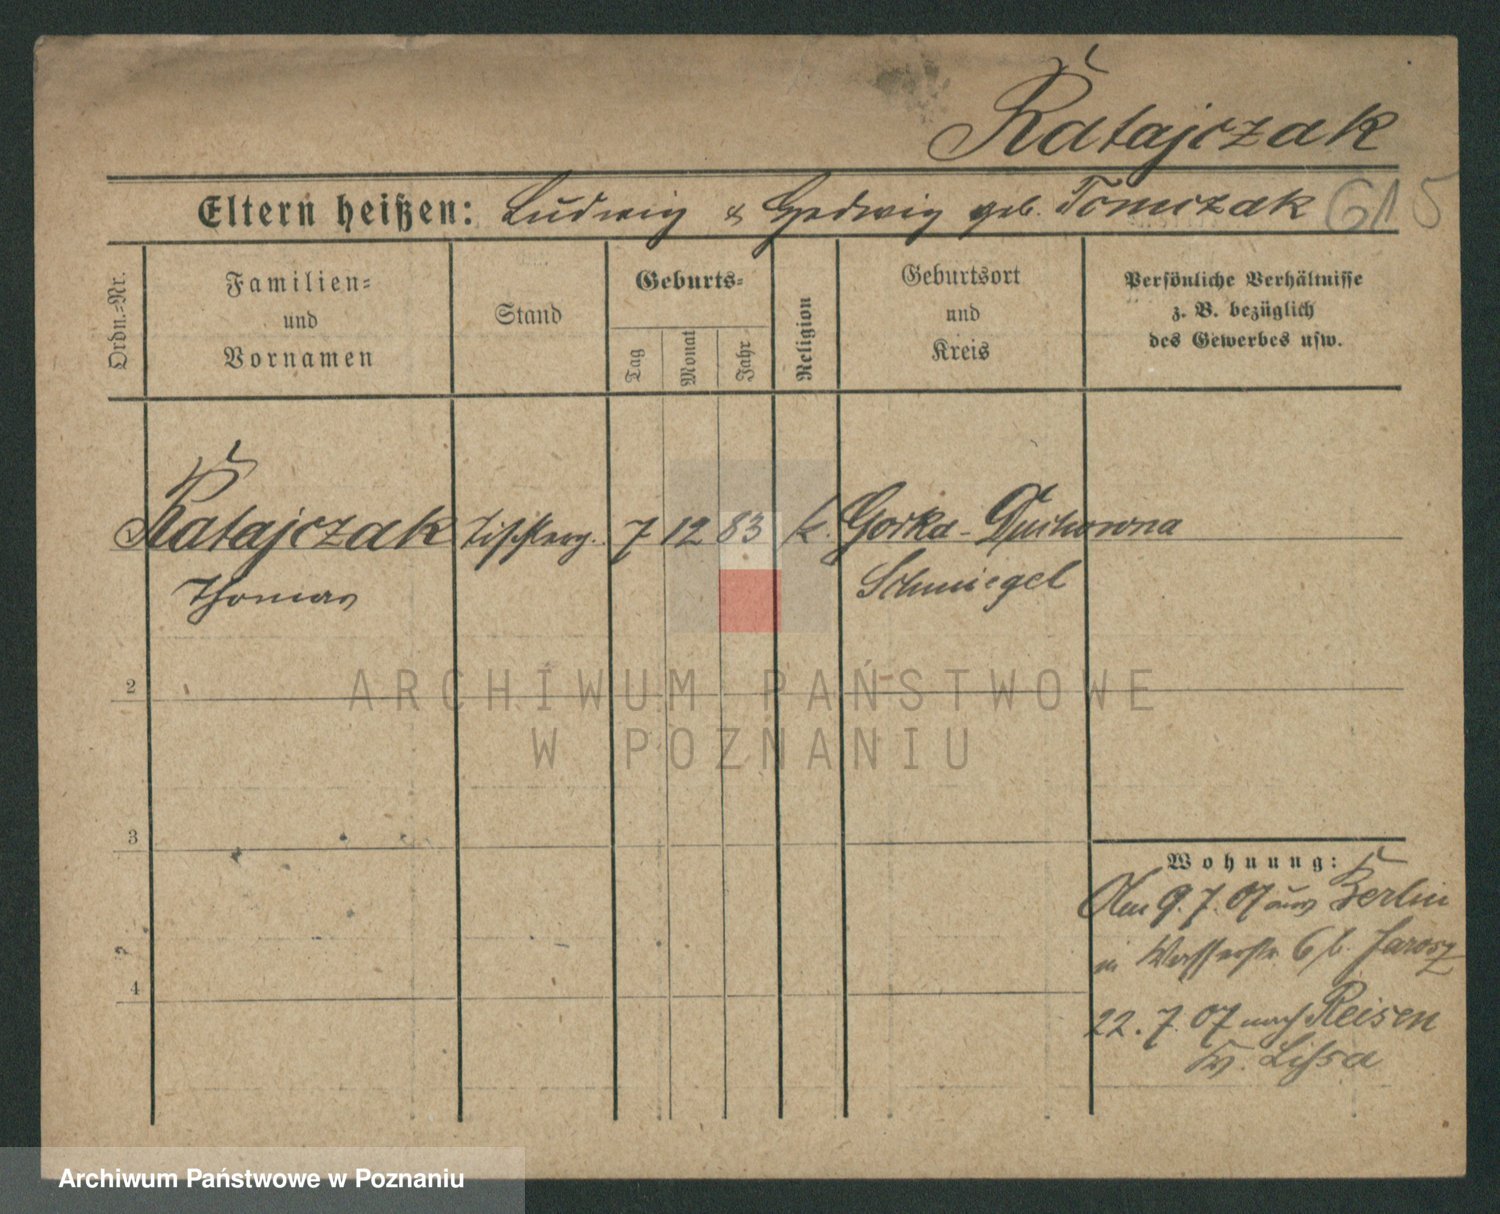 Ratajczak
Eltern heißen: Ludwig & Hedwig geb. Tomczak 615
Ordn.=Nr.
Familien=
und
Vornamen
Stand
Geburts=
Tag
Monat
Jahr
Religion
Geburtsort
und
Kreis
Persönliche Verhältnisse
z. B. bezüglich
des Gewerbes usw.
Ratajczak Tischlerg. 7 12 83 k. Gorka-Duchowna
Thomas Schmiegel
ARCHIWUM PAŃSTWOWE
W POZNANIU
2
3
4
Wohnung:
Am 9.7.07 aus Berlin
in Wasserstr. 6 b. Jarosz
22.7.07 nach Reisen
Kr. Lissa
Archiwum Państwowe w Poznaniu